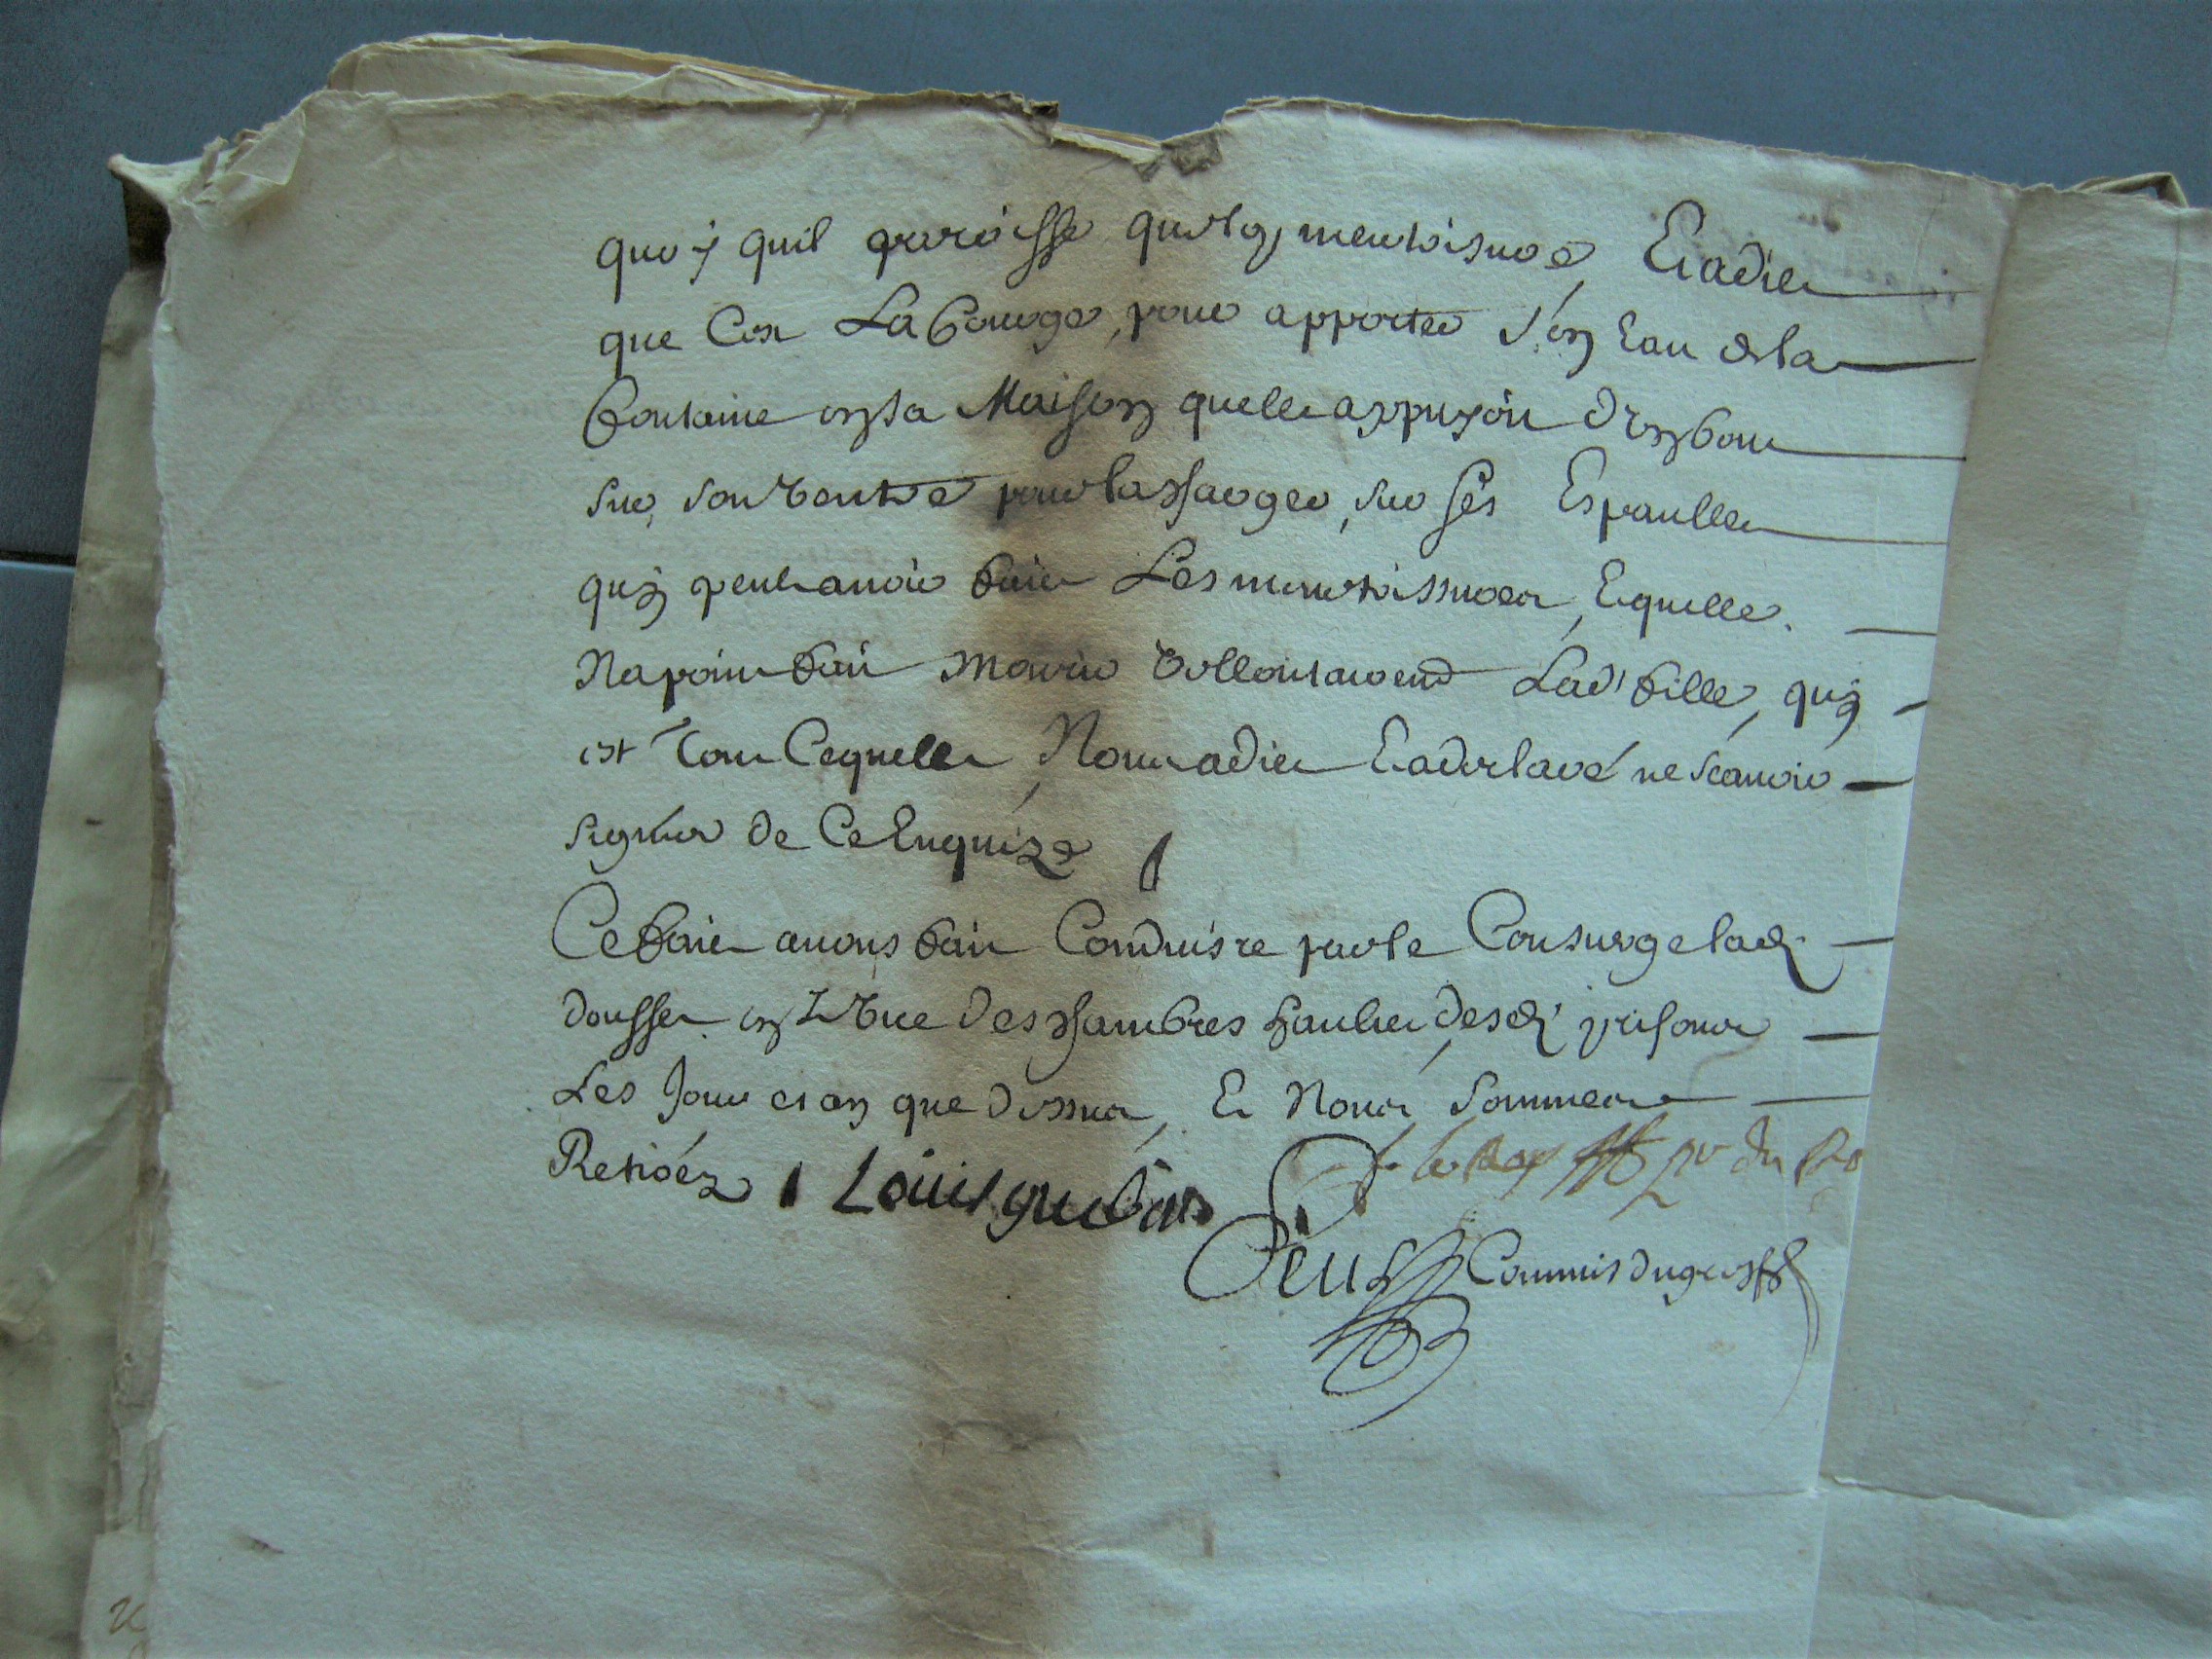 quoy quil paroisse quelq meurtrisure, Et a dit
que Cest La Courge, pour apporter d'en Eau de la
fontaine en sa Maison quelle appuyoit d'un bout
sur son ventre pour la charger, sur ses Espaulles
quy peut avoir faict Les meurtrissures, Et quelle
Na point fait mourir vollontairement Lad' fille, quy
est Tout Ce quelle Nous a dict Et a declaré ne scavoir
signer de Ce Enquize
Ce faict avons fait Conduisre par le Consierge lad'
dousset en L'une des chambres haultes desd' prisons
Les Jour et an que dessus, Et Nous sommes
Retiréz Louis
pr du Ro
Commis du greffe